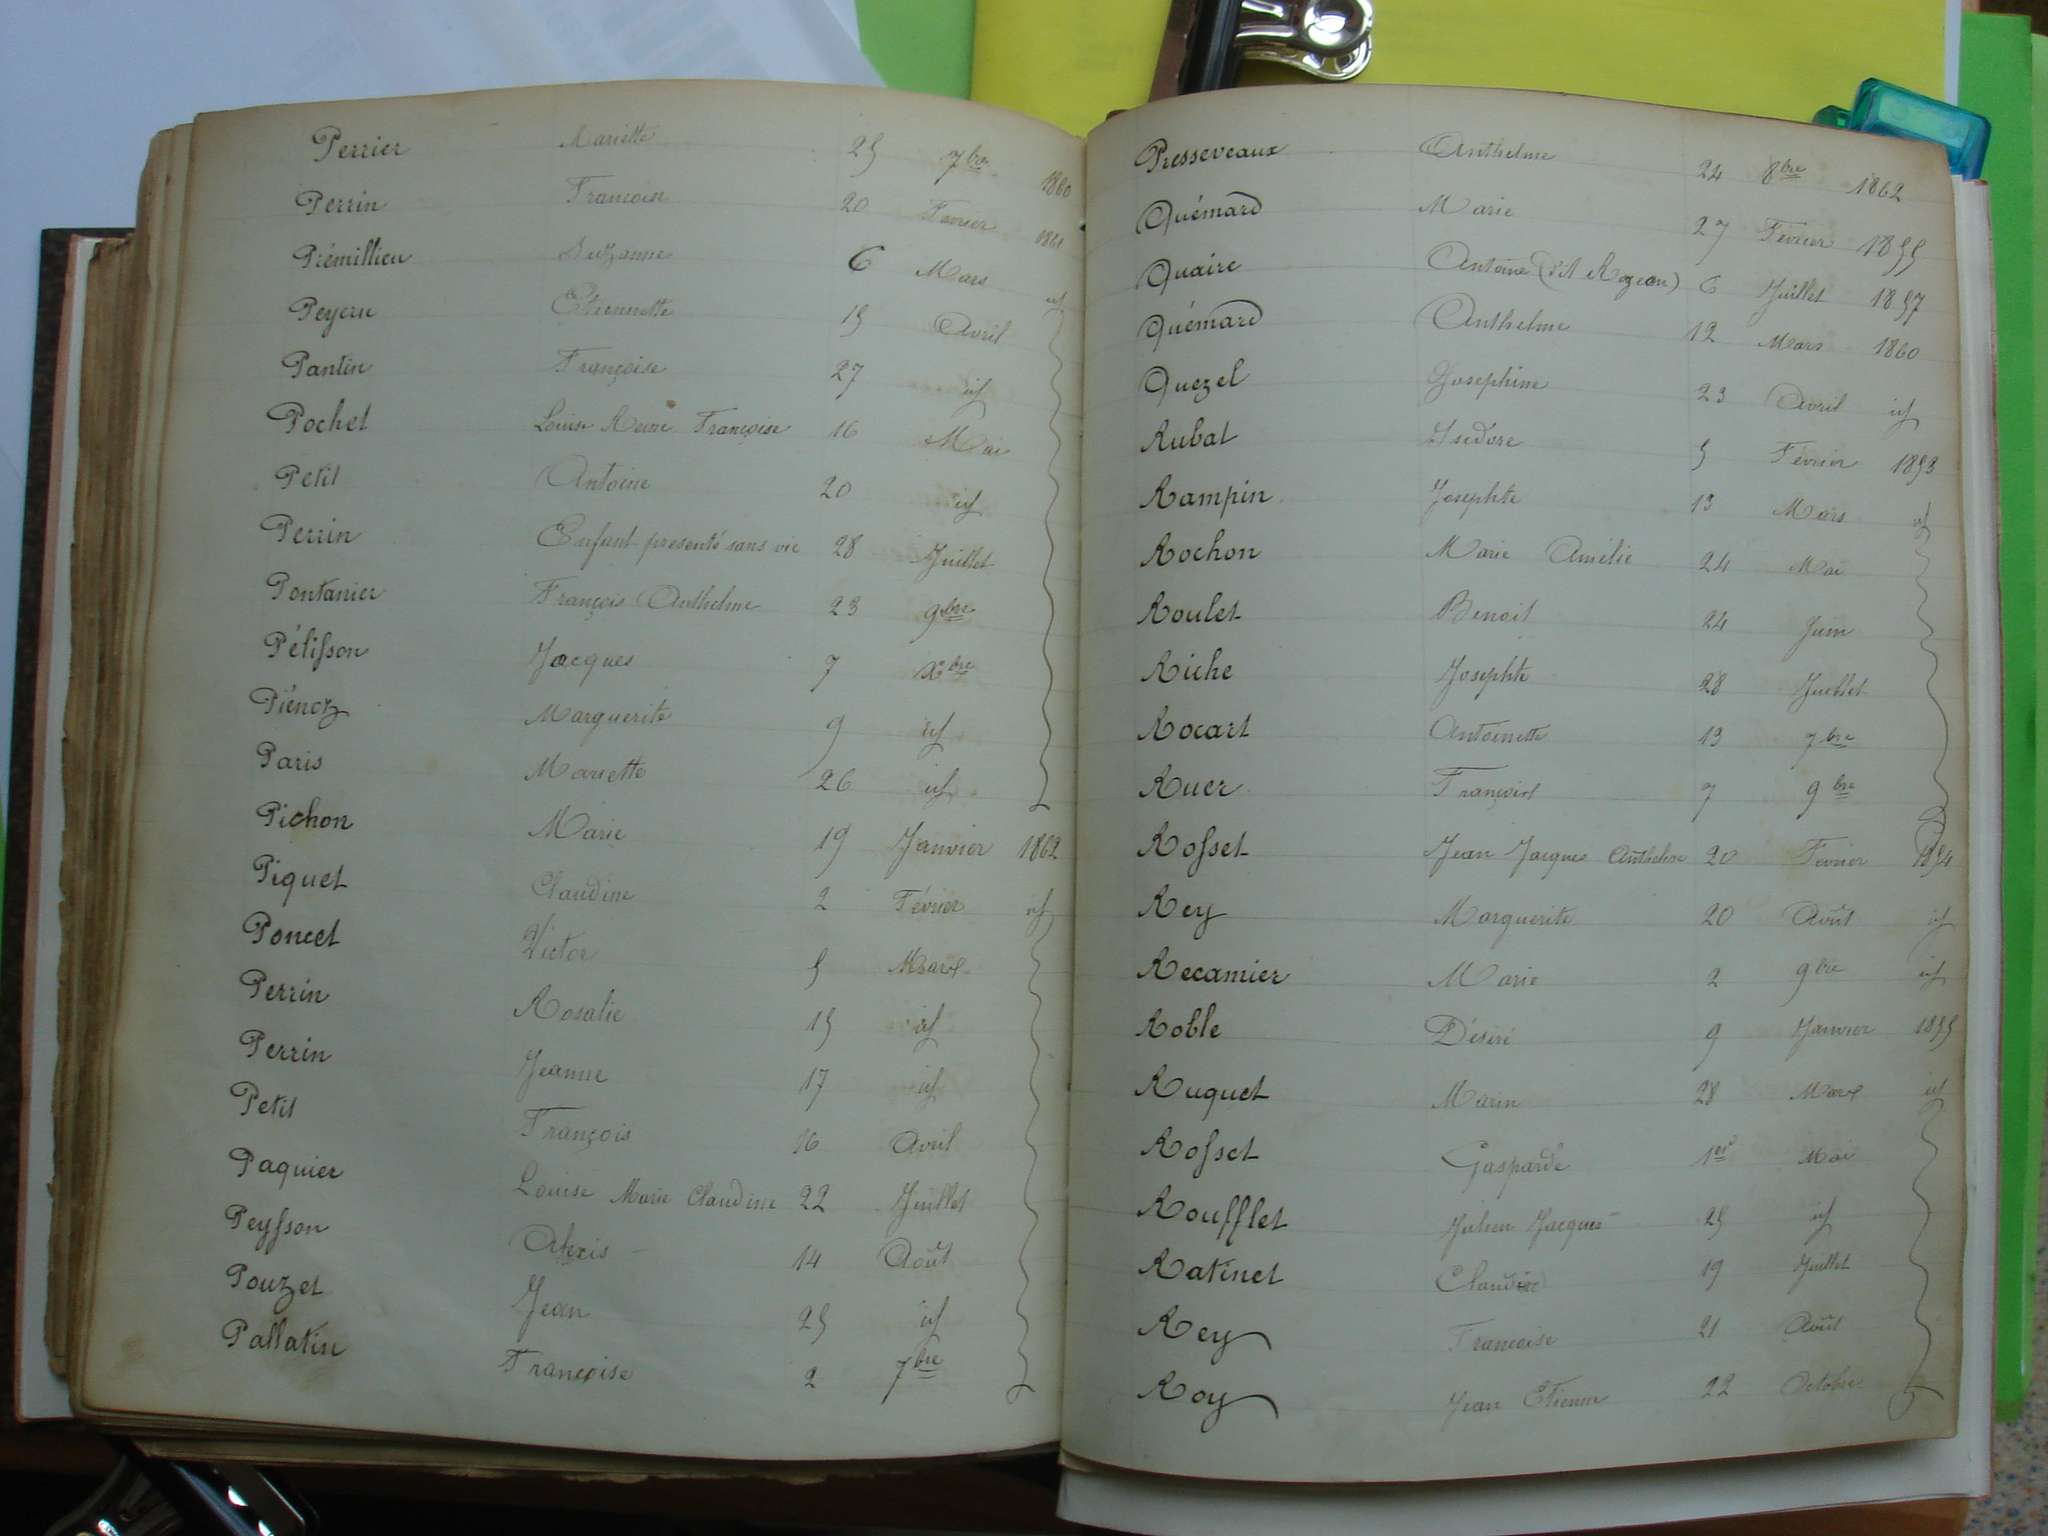 Perrier Mariette 25 7bre 1860
Perrin Françoise 20 Février 1861
Prémillieu Suzanne 6 Mars id
Peycru Etiennette 15 Avril
Pantin Françoise 27 id
Pochet Louise Reine Françoise 16 Mai
Petit Antoine 20 id
Perrin Enfant presenté sans vie 28 Juillet
Pontanier François Anthelme 23 9bre
Pélisson Jacques 7 Xbre
Piénoz Marguerite 9 id
Paris Mariette 26 id
Pichon Marie 19 Janvier 1862
Piquet Claudine 2 Février id
Poncet Victor 5 Mars
Perrin Rosalie 15 id
Perrin Jeanne 17 id
Petit François 16 Avril
Paquier Louise Marie Claudine 22 Juillet
Peysson Alexis 14 Août
Pouzet Jean 25 id
Pallatin Françoise 2 7bre
Presseveaux Anthelme 24 8bre 1862
Quémard Marie 27 Février 1855
Quaire Antoine (dit Rozean) 6 Juillet 1857
Quémard Anthelme 12 Mars 1860
Quezel Josephine 23 Avril id
Rubat Isidore 5 Février 1853
Rampin Josephte 13 Mars id
Rochon Marie Amélie 24 Mai
Roulet Benoit 24 Juin
Riche Josephte 28 Juillet
Rocart Antoinette 13 7bre
Ruer François 7 9bre
Rosset Jean Jacques Anthelme 20 Février 1854
Rey Marguerite 20 Août id
Recamier Marie 2 9bre id
Roble Désiré 9 Janvier 1855
Ruquet Marin 28 Mars id
Rosset Gasparde 1er Mai
Roufflet Julien Jacques 25 id
Ratinet 19 Juillet
Rey Françoise 21 Août
Roy Jean Etienne 22 Octobre